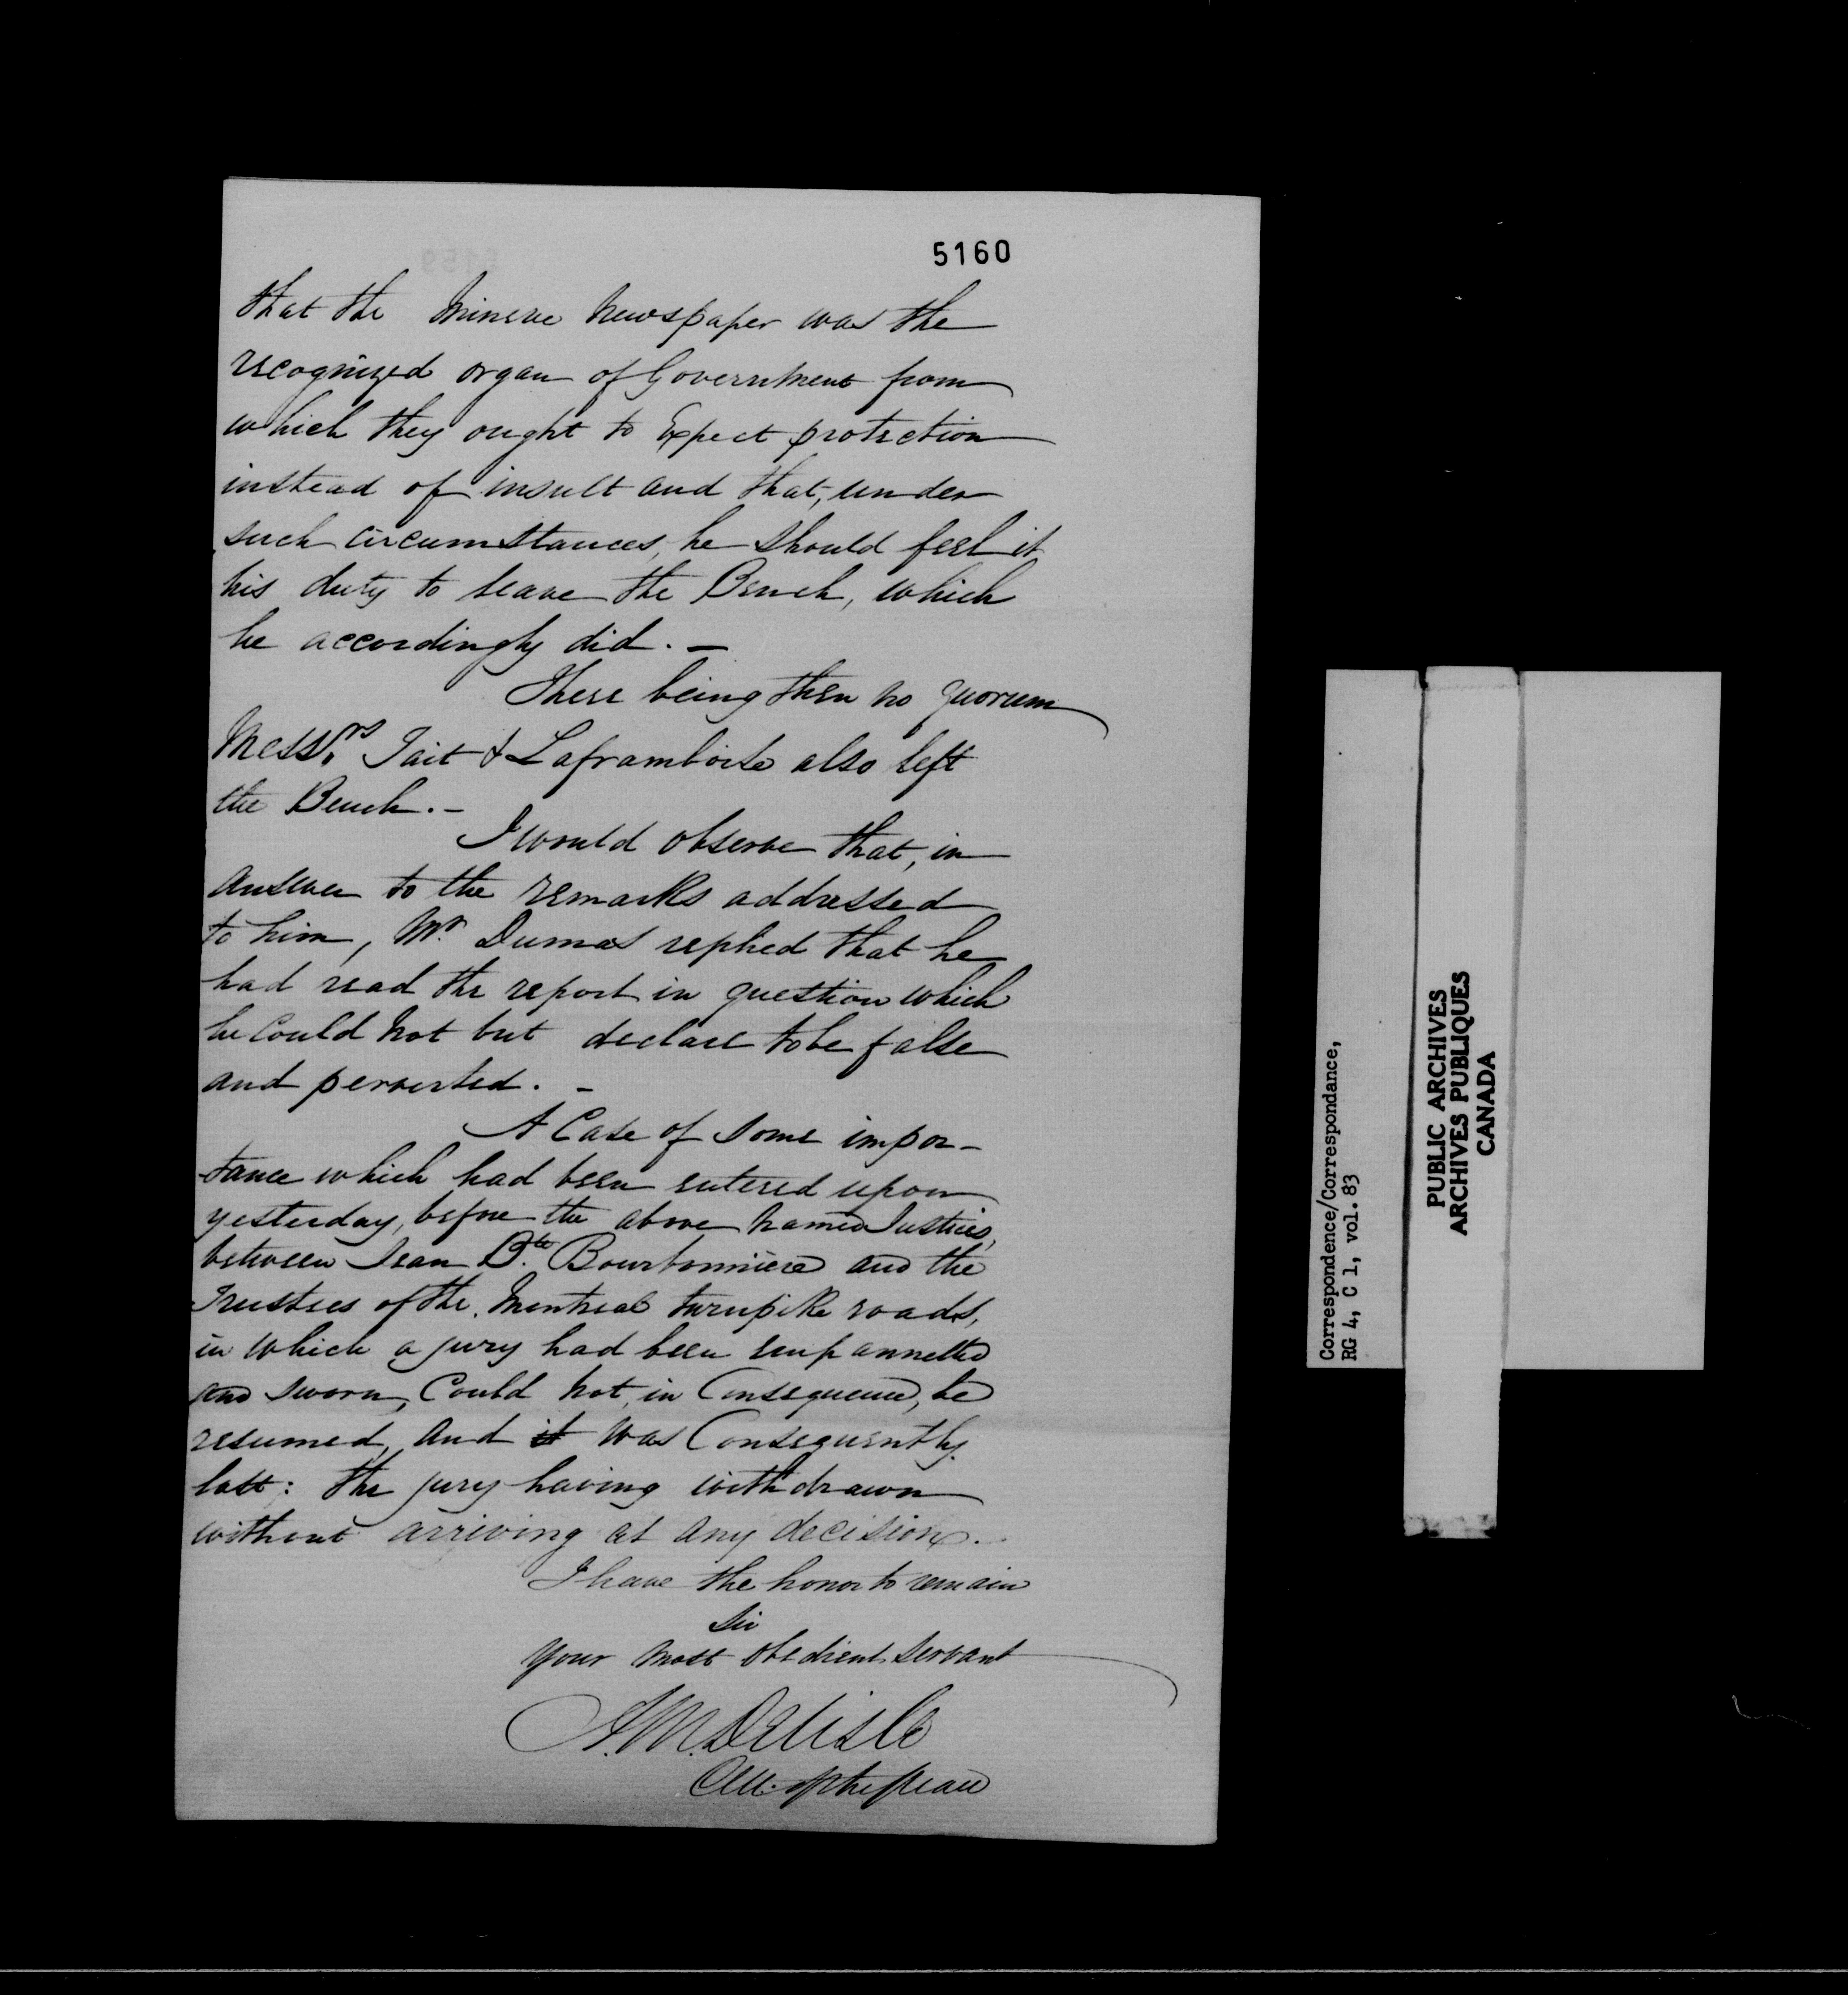 5160
that the Minerve Newspaper was the
recognized organ of Government from
which they ought to Expect protection
instead of insult and that, under
such circumstances, he should feel it
his duty to leave the Bench, which
he accordingly did. —
There being then no quorum
Messrs Tait & Laframboise also left
the Bench. —
I would observe that, in
answer to the remarks addressed
to him, Mr. Dumas replied that he
had read the report in question which
he Could not but declare to be false
and perverted. —
A Case of some impor-
tance which had been entered upon
yesterday, before the above named Justices,
between Jean Bte. Bourbonnière and the
Trustees of the Montreal turnpike roads,
in which a jury had been empannelled
and sworn, Could not, in Consequence, be
resumed, and it was Consequently
lost: the jury having withdrawn
without arriving at any decision.
I have the honor to remain
Sir
Your most obedient servant
A. M. Delisle
Clk. of the Peace
Correspondence/Correspondance,
RG 4, C 1, vol. 83
PUBLIC ARCHIVES
ARCHIVES PUBLIQUES
CANADA